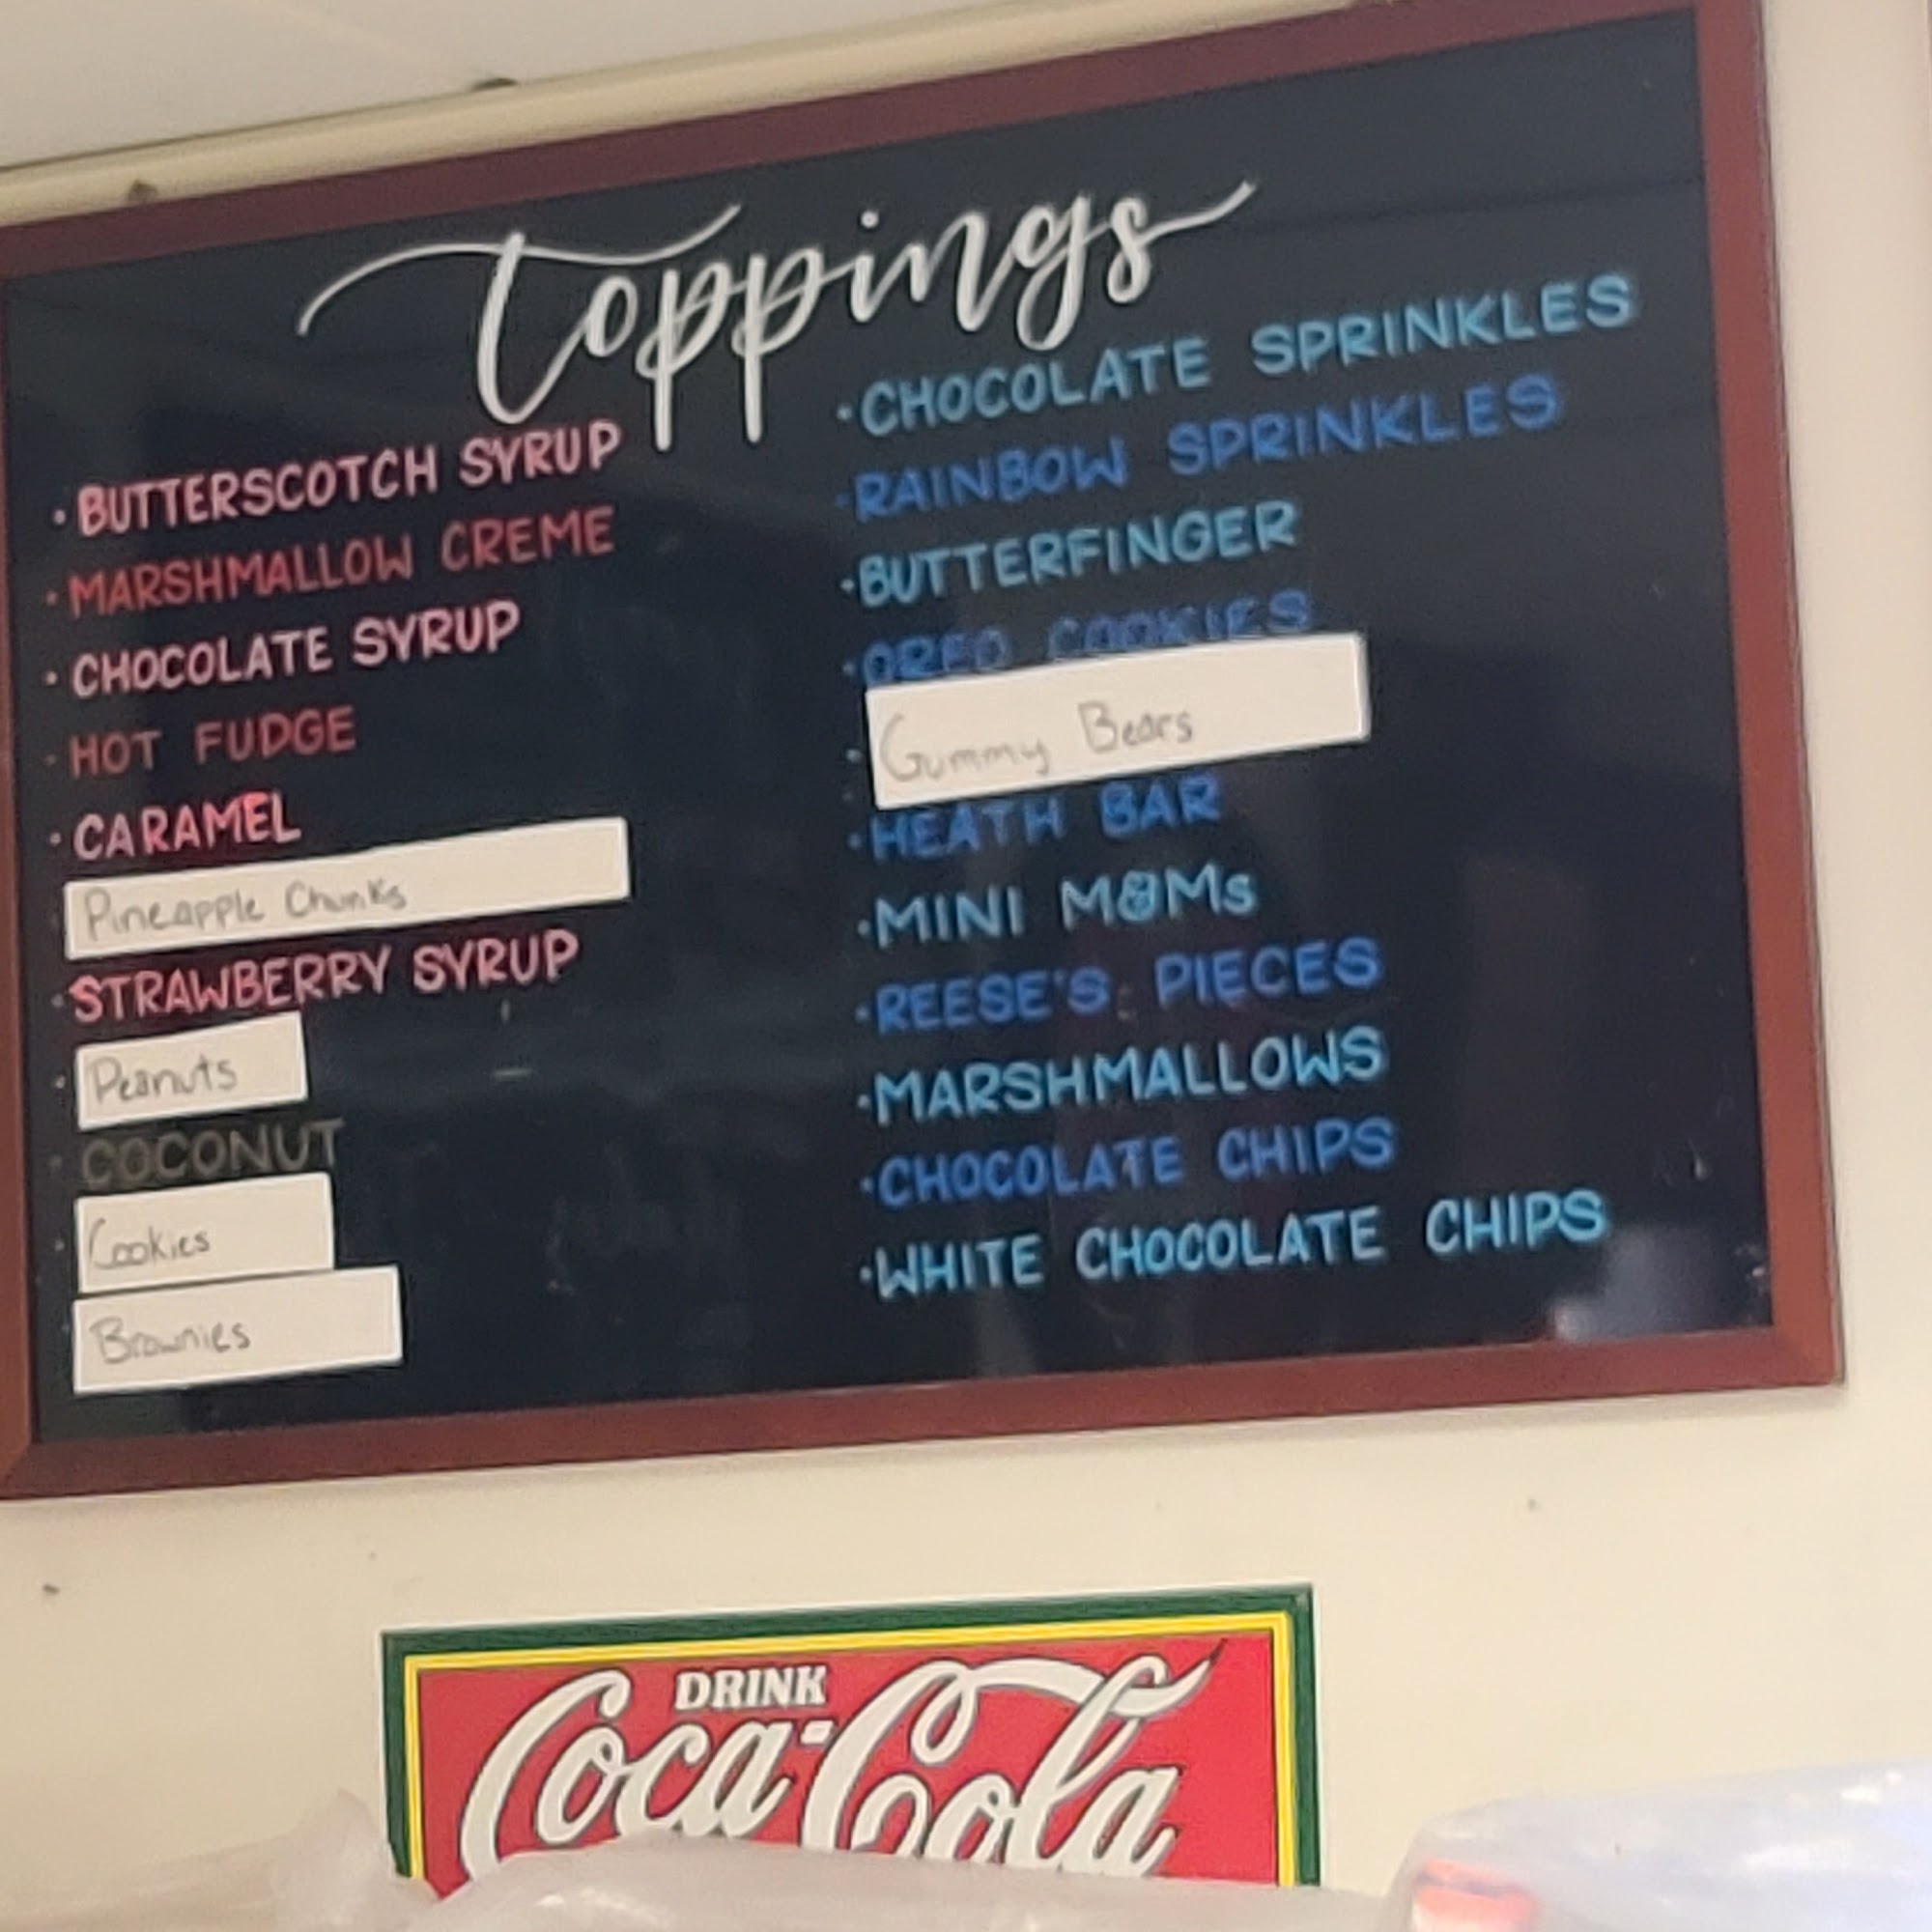 Toppings
· BUTTERSCOTCH SYRUP
· MARSHMALLOW CREME
· CHOCOLATE SYRUP
· HOT FUDGE
· CARAMEL
Pineapple Chunks
· STRAWBERRY SYRUP
· Peanuts
· COCONUT
· Cookies
Brownies
· CHOCOLATE SPRINKLES
· RAINBOW SPRINKLES
· BUTTERFINGER
· OREO COOKIES
· Gummy Bears
· HEATH BAR
· MINI M&Ms
· REESE'S PIECES
· MARSHMALLOWS
· CHOCOLATE CHIPS
· WHITE CHOCOLATE CHIPS
DRINK
Coca-Cola